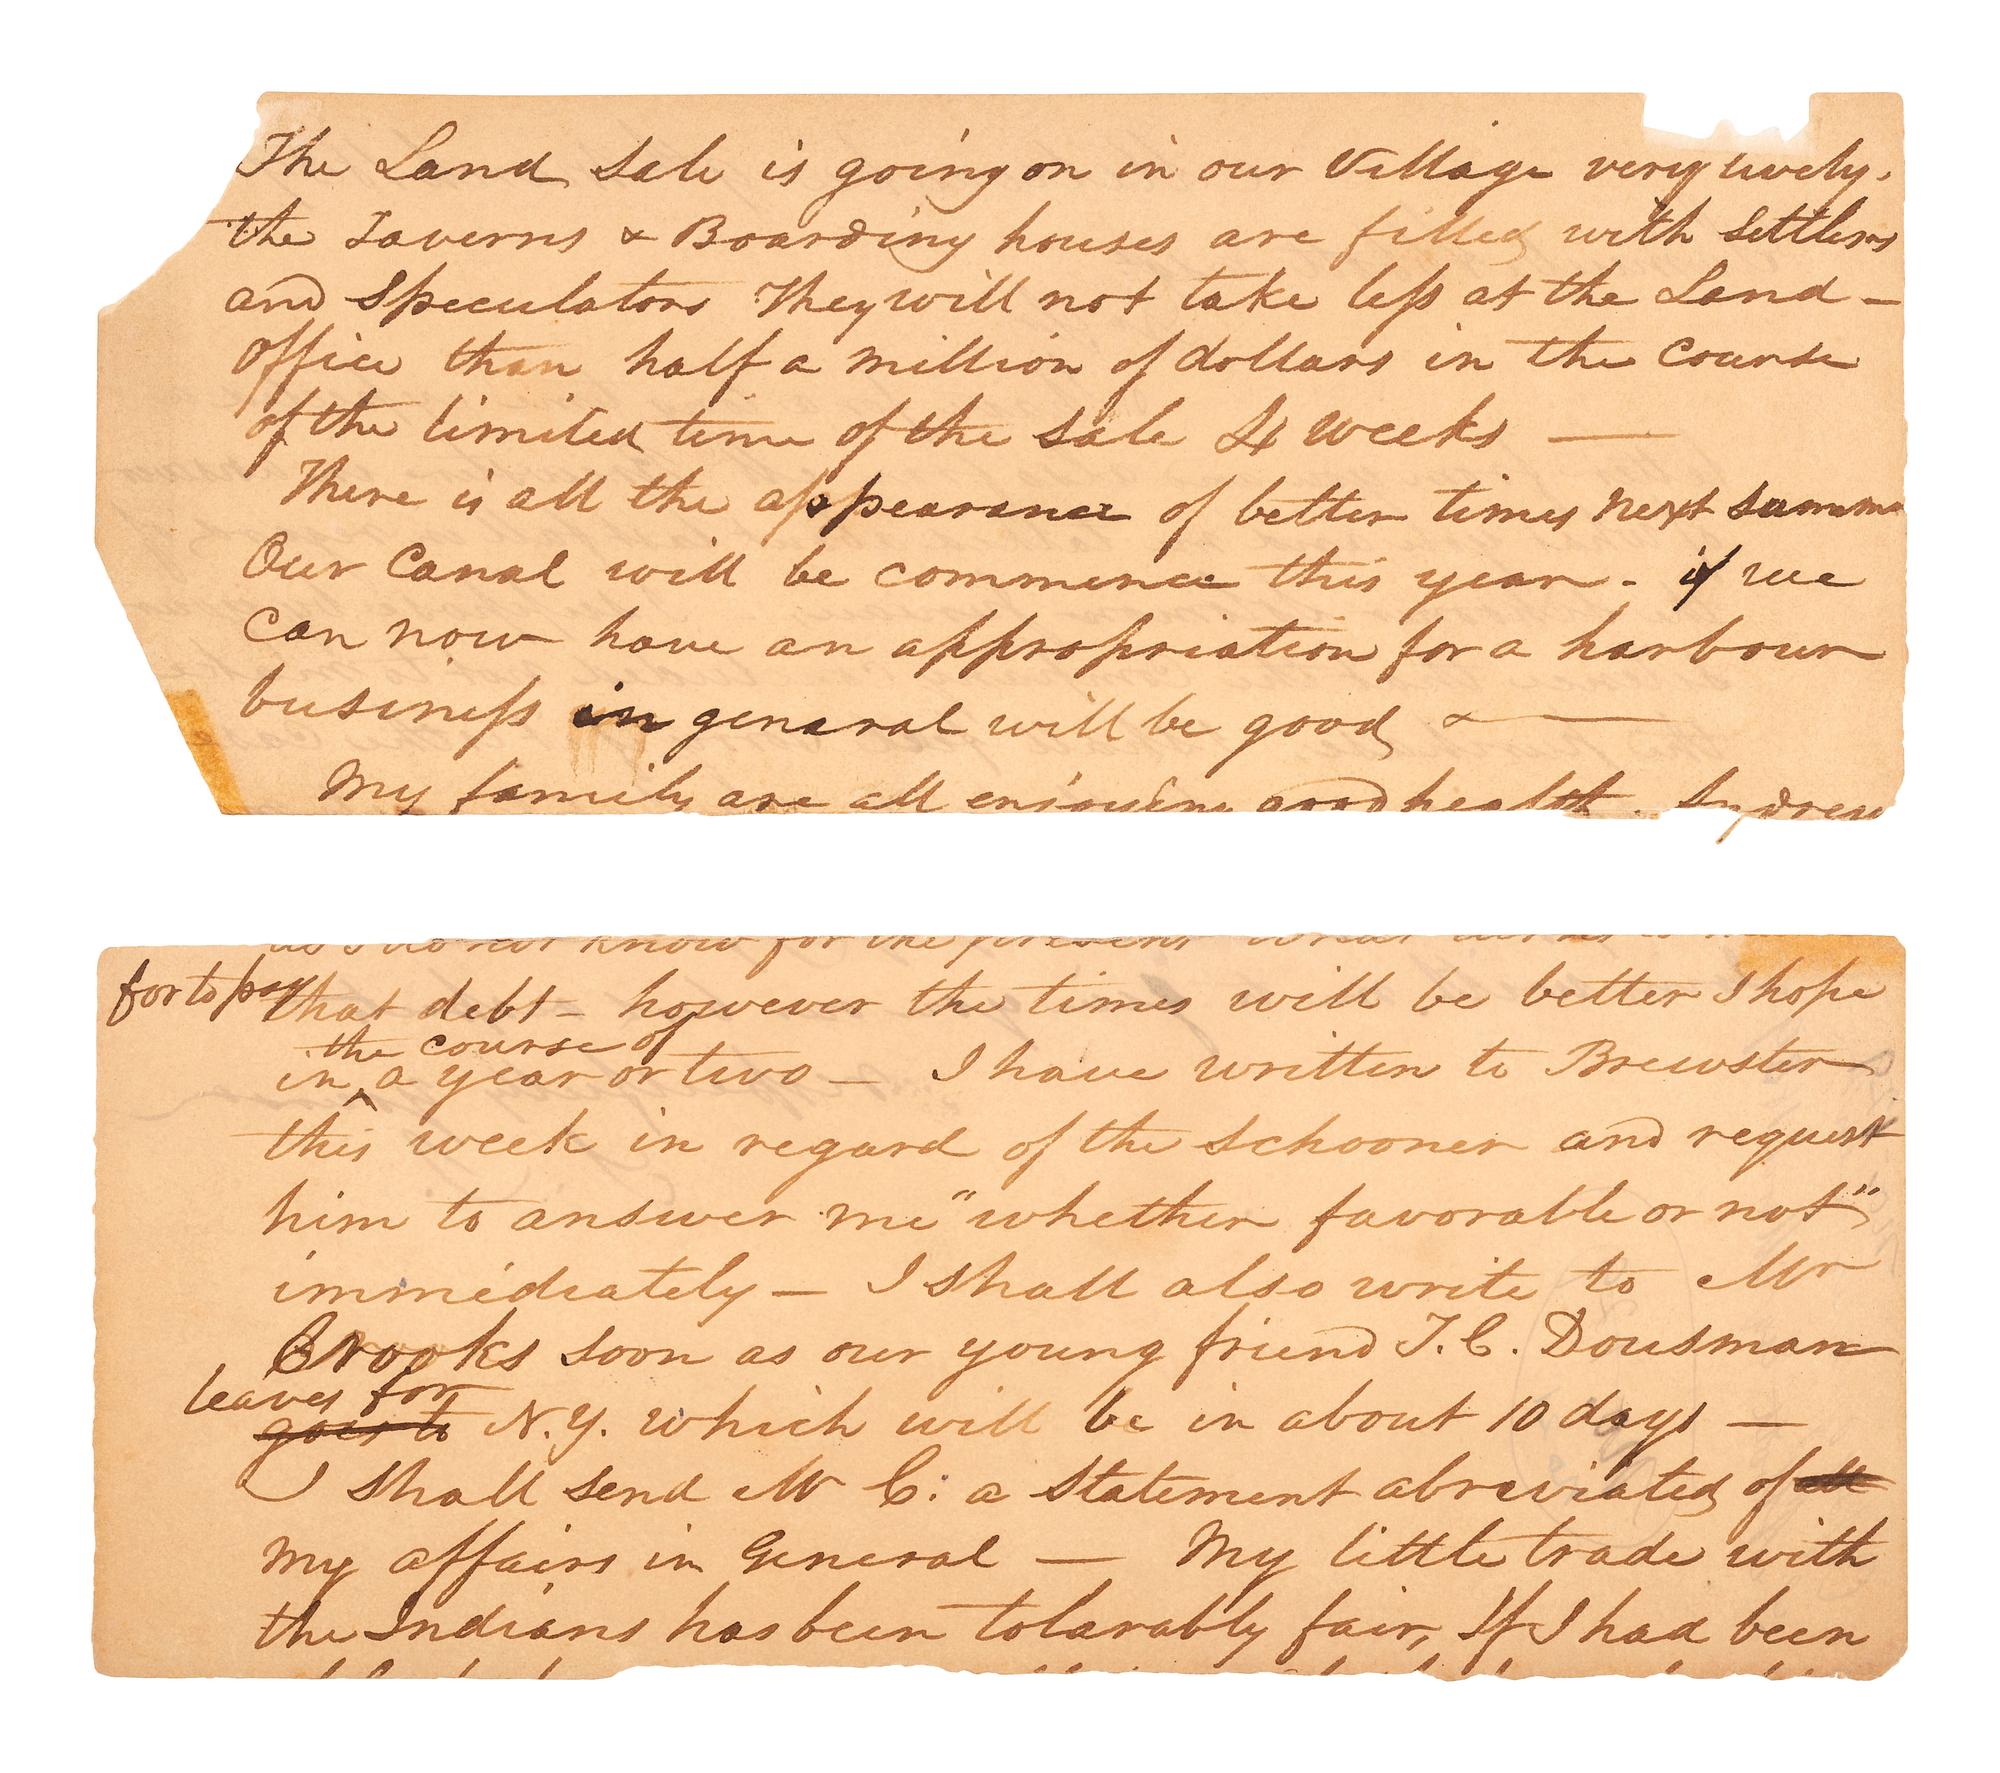 The Land Sale is going on in our Village very lively.
the Taverns & Boarding houses are filled with Settlers
and Speculators They will not take less at the Land –
office than half a million of dollars in the course
of the limited time of the sale 4 weeks —
There is all the appearance of better times next summe
Our Canal will be commence this year. if we
can now have an appropriation for a harbour
business in general will be good & —
My family are all enjoying good health. Andrew
as I do not know for the present what
for to pay that debt – however the times will be better I hope
the course of
in a year or two — I have written to Brewster
this week in regard of the Schooner and request
him to answer me "whether favorable or not"
immediately — I shall also write to Mr
Crooks soon as our young friend T. C. Dousman
leaves for
goes to N.Y. which will be in about 10 days —
I shall send Mr C: a statement abreviated of all
my affairs in General — My little trade with
the Indians has been tolarably fair, If I had been